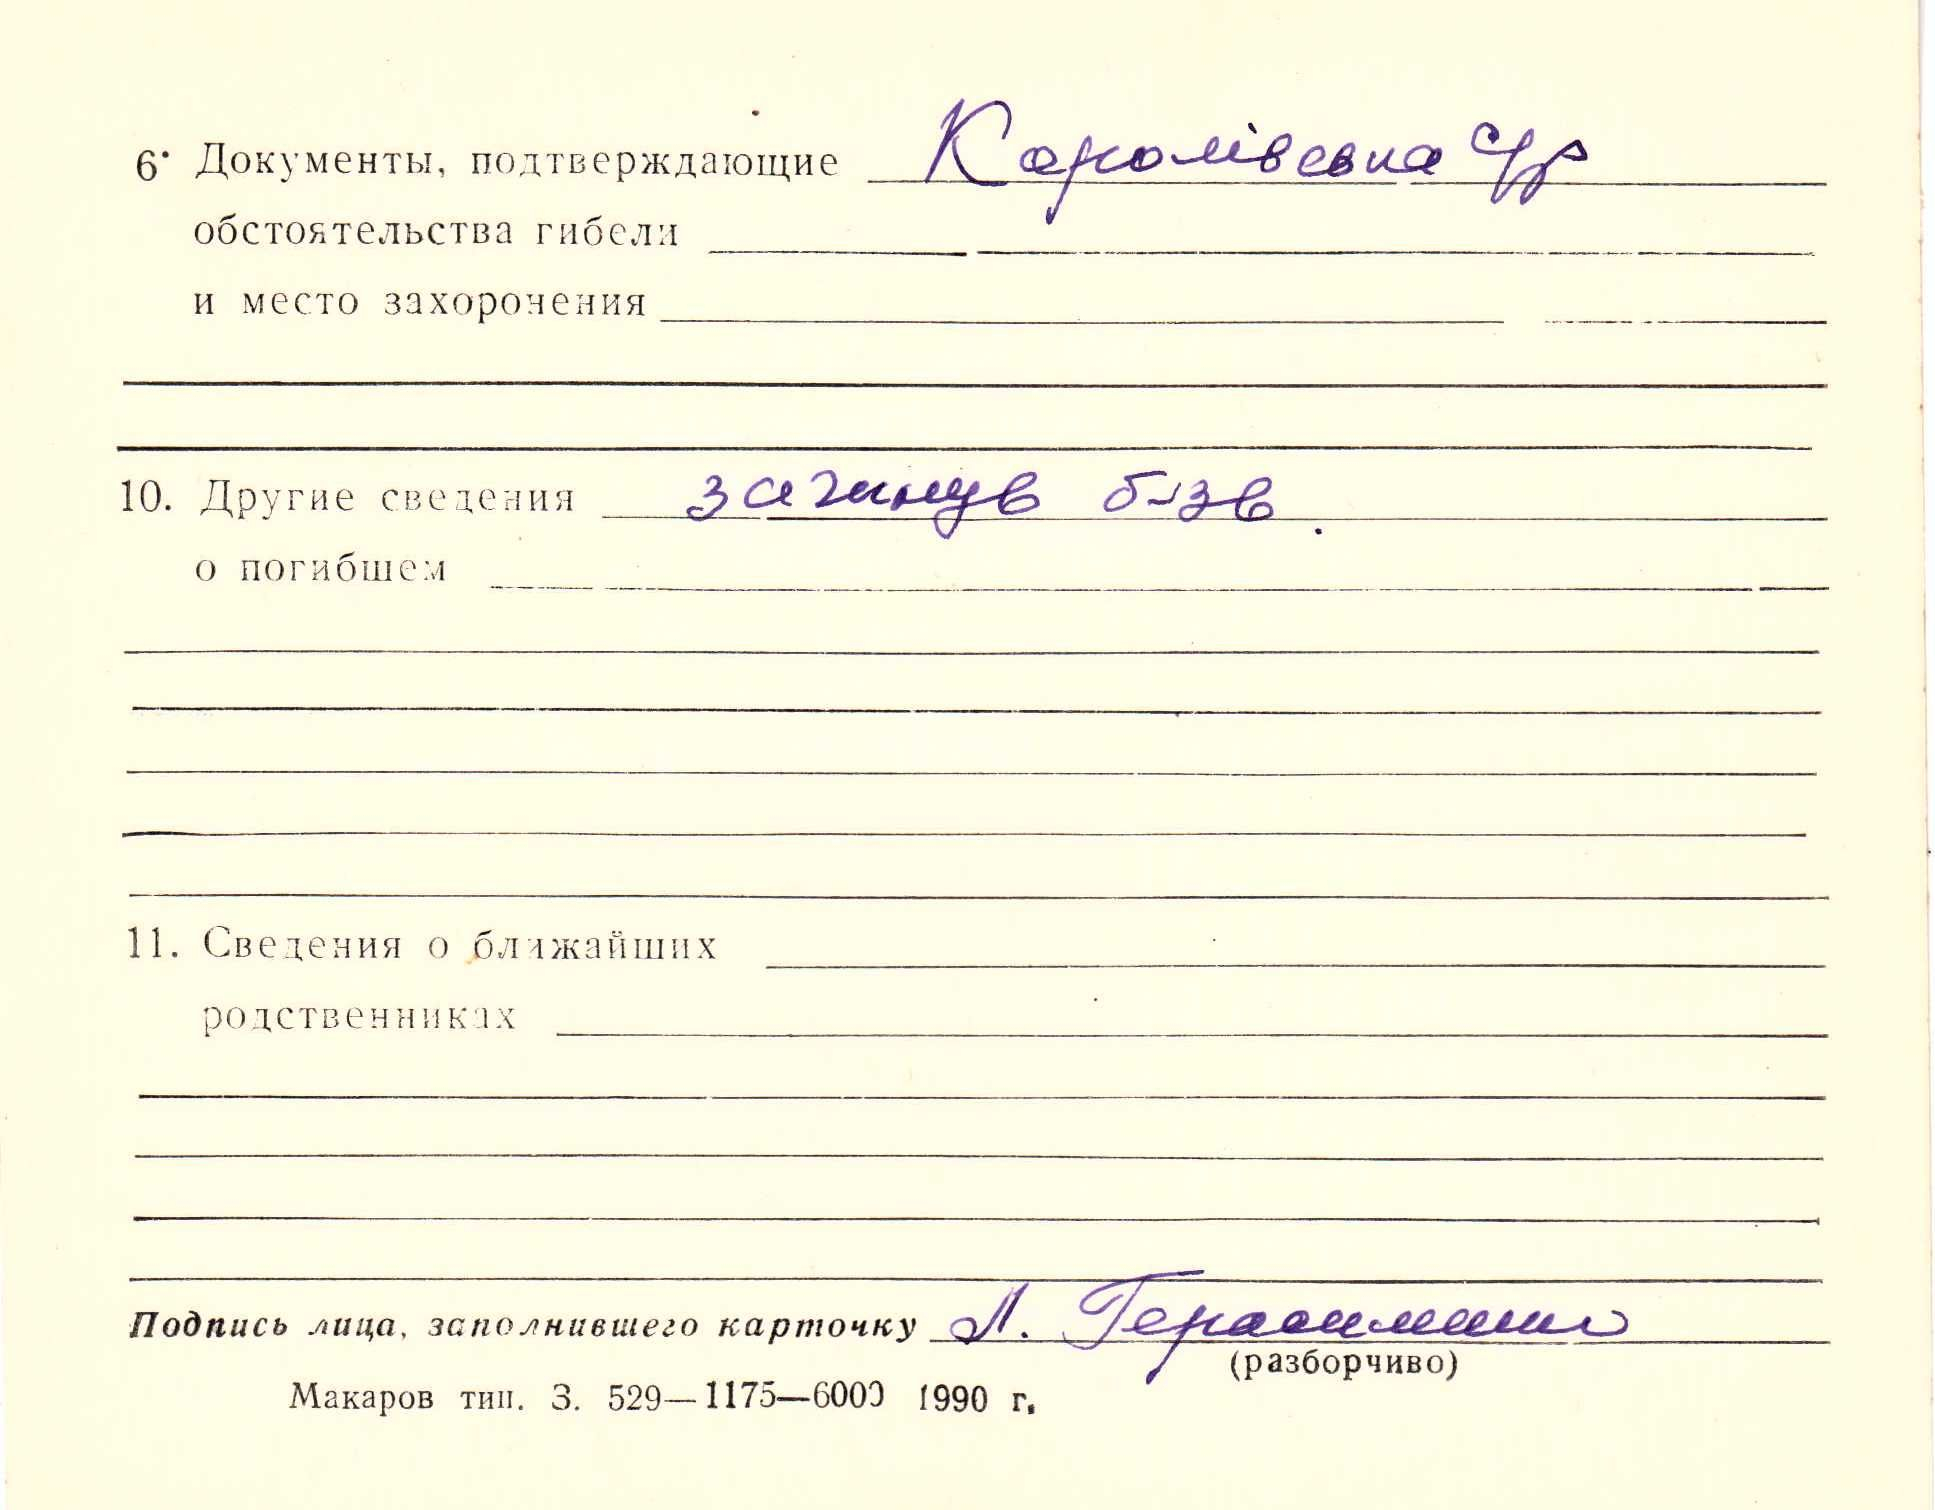 6. Документы, подтверждающие
обстоятельства гибели
и место захоронения
10. Другие сведения загинув
о погибшем
11. Сведения о ближайших
родственниках
Подпись лица, заполнившего карточку Л.
(разборчиво)
Макаров тип. З. 529—1175—6000 1990 г.